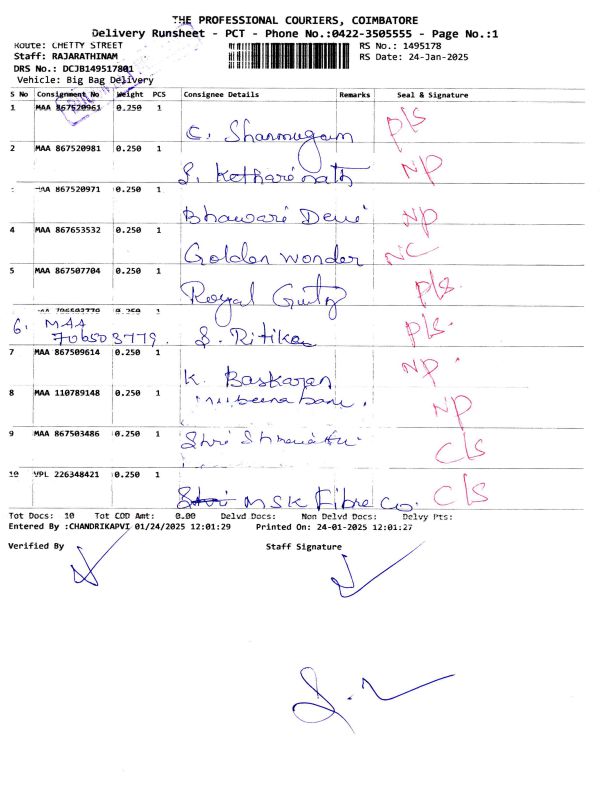 THE PROFESSIONAL COURIERS, COIMBATORE
Delivery Runsheet - PCT - Phone No.:0422-3505555 - Page No.:1
Route: CHETTY STREET RS No.: 1495178
Staff: RAJARATHINAM RS Date: 24-Jan-2025
DRS No.: DCJB149517801
Vehicle: Big Bag Delivery
S No Consignment No Weight PCS Consignee Details Remarks Seal & Signature
1 MAA 867520961 0.250 1
C. Shanmugam P/S
2 MAA 867520981 0.250 1
S. Ketharinath NP
MAA 867520971 0.250 1
Bhawari Devi NP
4 MAA 867653532 0.250 1
Golden wonder NC
5 MAA 867507704 0.250 1
Royal P/S.
MAA 706503779 0.250 1
6. MAA
706503779. S. Ritika P/S.
7 MAA 867509614 0.250 1
K. Baskaran NP
8 MAA 110789148 0.250 1
NP
9 MAA 867503486 0.250 1
Shri C/S
10 VPL 226348421 0.250 1
MSK Fibre Co. C/S
Tot Docs: 10 Tot COD Amt: 0.00 Delvd Docs: Non Delvd Docs: Delvy Pts:
Entered By :CHANDRIKAPVI 01/24/2025 12:01:29 Printed On: 24-01-2025 12:01:27
Verified By Staff Signature